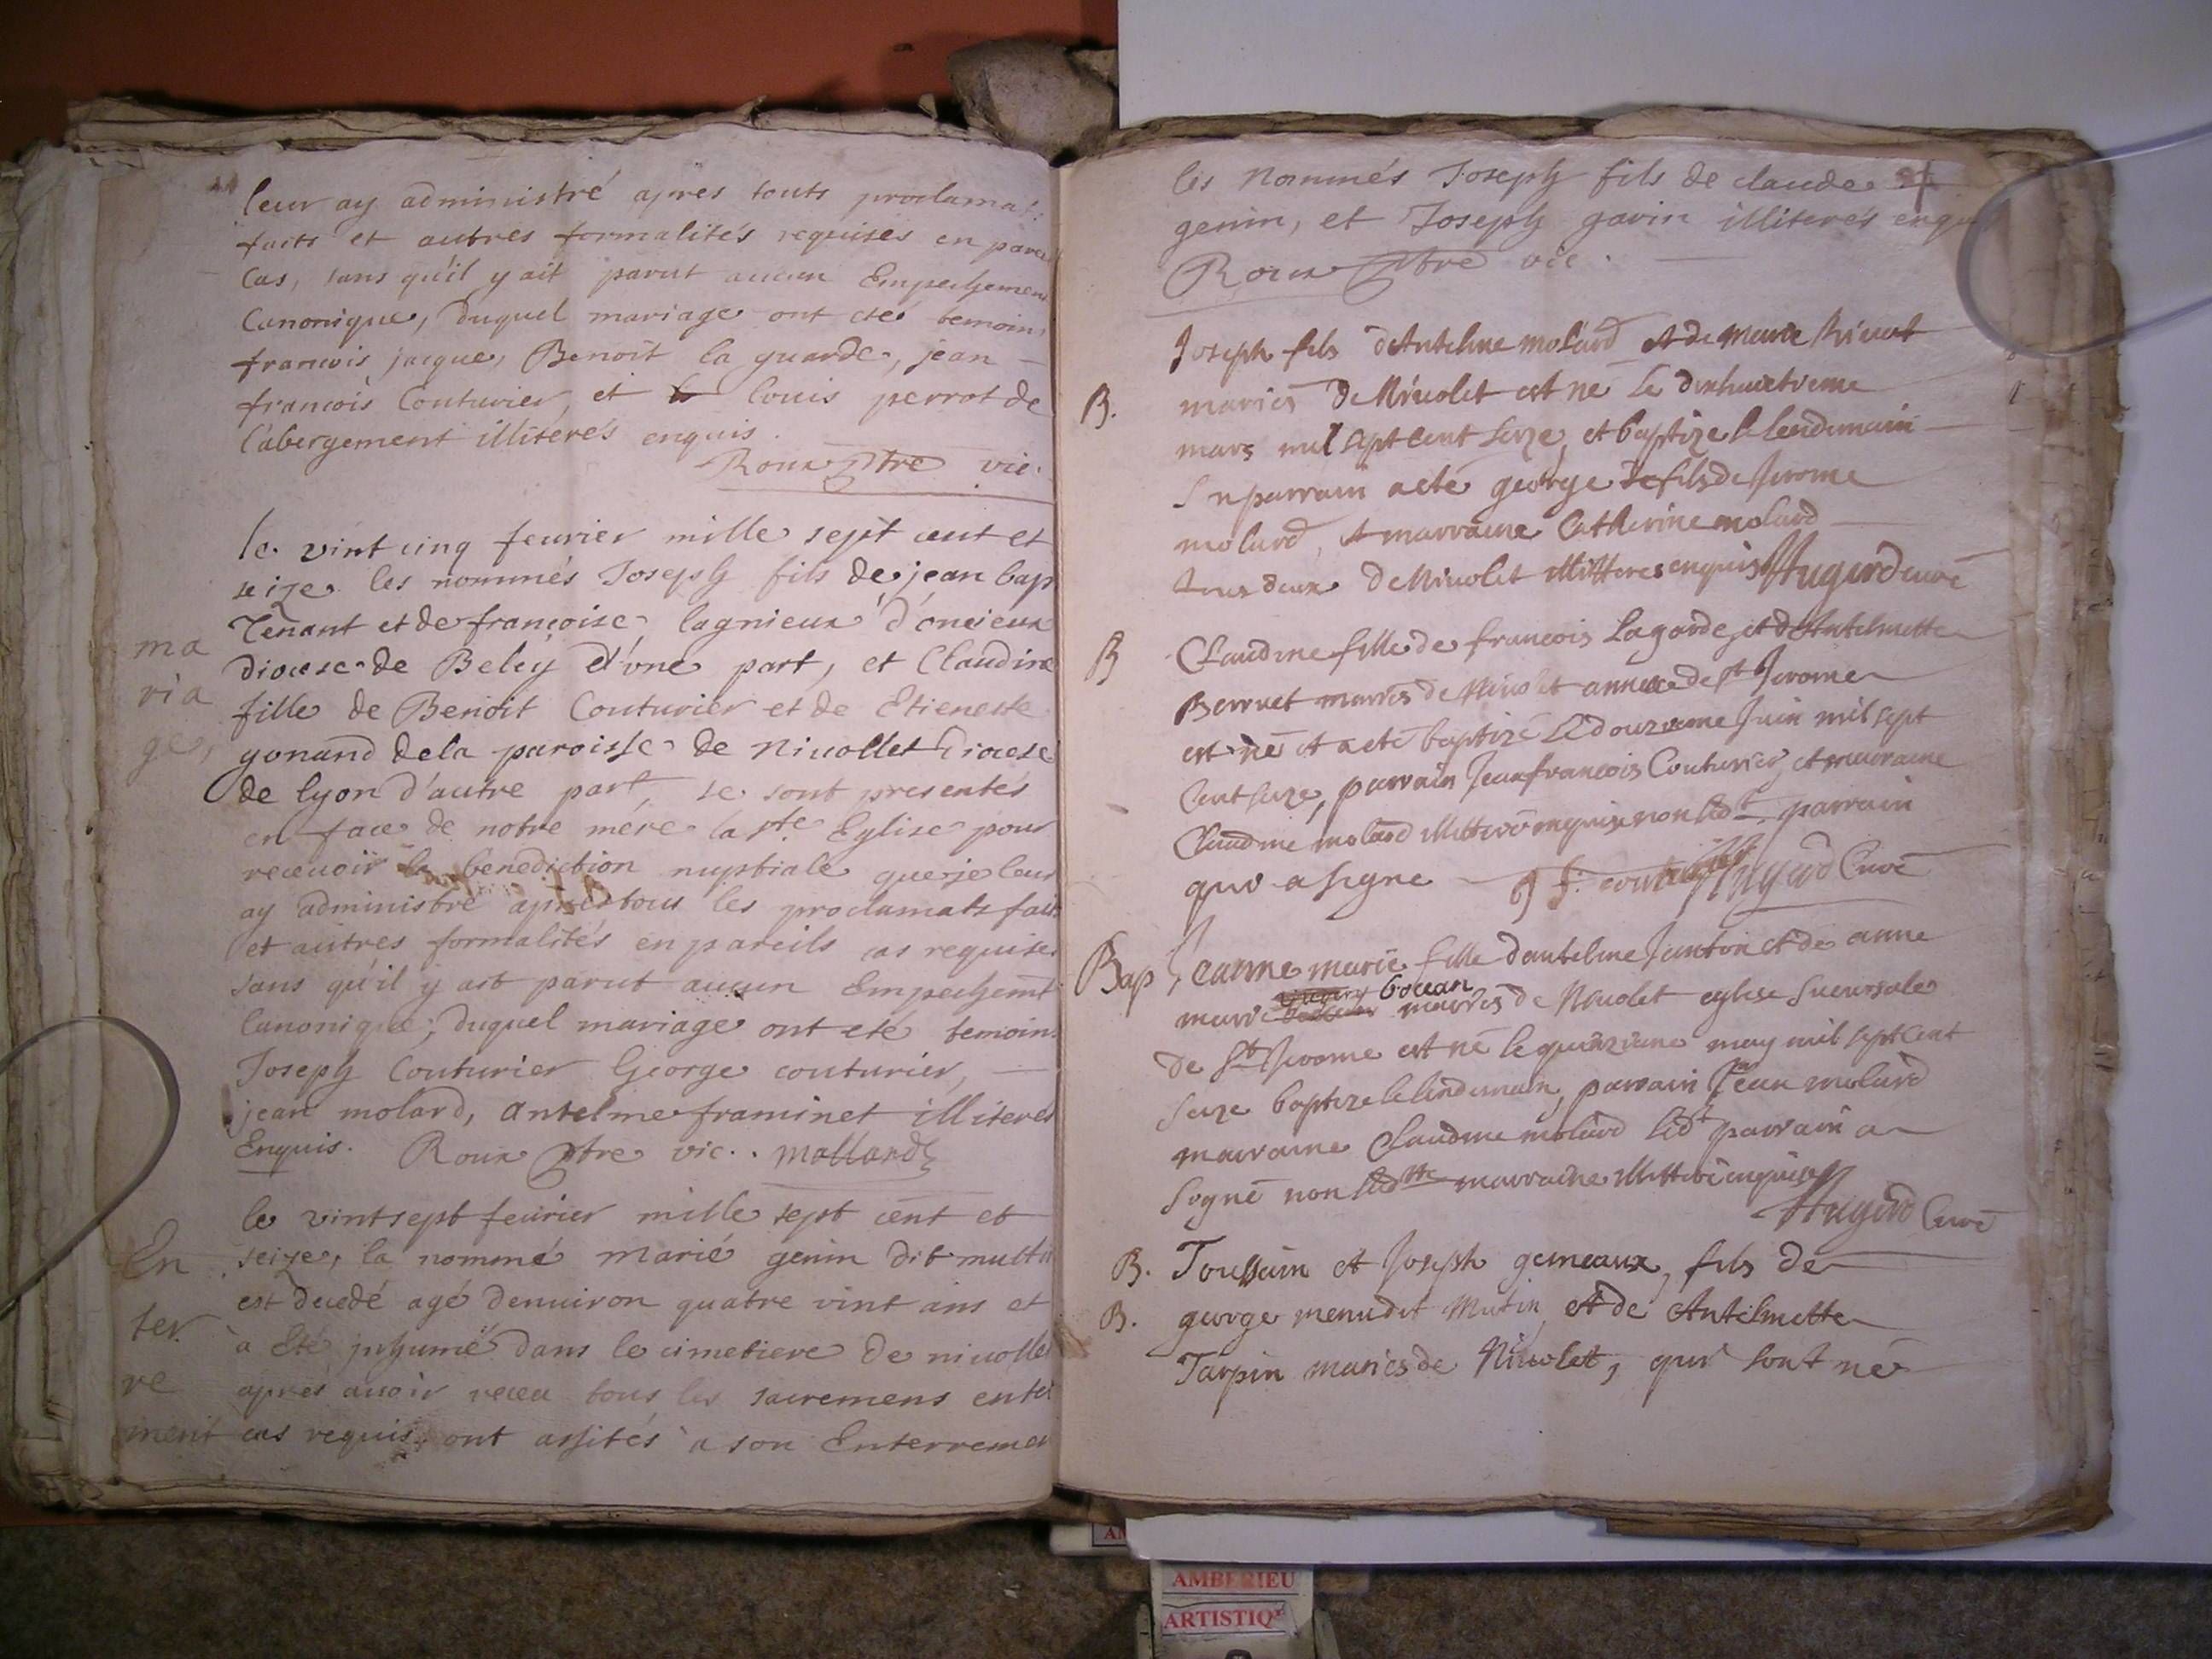 leur ay administré apres touts proclamat:
faits et autres formalités requises en parei
Cas, sans qu'il y ait parut aucun Empechement
Canonique, duquel mariage ont été temoins
francois jacque, Benoit la guarde, jean
francois Couturier, et louis perrot de
l'abergement illiterés enquis.
Roux ptre vic.
le vint cinq feurier mille sept cent et
seize les nommés Joseph fils de jean bap
Tenant et de francoise lagnieux d'oncieux
ma
diocese de Beley d'une part, et Claudine
ria
fille de Benoit Couturier et de Etienette
ge,
gonand de la paroisse de nivollet Diocese
de lyon d'autre part, se sont presentés
en face de notre mére la ste Eglise pour
recevoir la benediction nuptiale que je leur
ay administré aprés tous les proclamats faits
et autres formalités en pareils cas requises
sans qu'il y ait parut aucun Empechemt
Canonique, duquel mariage ont eté temoins
Joseph Couturier George couturier,
jean molard, antelme framinet illiterés
Enquis. Roux ptre vic.. mallard
le vintsept feurier mille sept cent et
En
seize, la nommé marié genin dit mutti
est decedé agé denuiron quatre vint ans et
ter
à Eté inhumé dans le cimetiere de nivolle
re
aprés auoir receu tous les sacremens en tel
ment
cas requis, ont assités a son Enterremen
les nommés Joseph fils de claude
genin, et Joseph gavin illiterés enqu
Roux ptre vic.
Joseph fils d'Antelme molard et de marie
B.
mariés de Nivolet est né le dixhuictieme
mars mil sept cent seze, et baptize le lendemain
Sn parrain a eté george fils de Jerome
molard, et marraine Catherine molard
tous deux de Nivolet illitteres enquis Hugard curé
B
Claudine fille de francois Lagarde, et d'Antelmette
Berruet mariés de Nivolet annexe de st Jerome
est né et a eté baptizé le douzieme Juin mil sept
Cent seze, parrain Jean francois Couturier, et marraine
Claudine molard illitteré enquise non led.t parrain
qui a signe j f. couturier Hugard Curé
Bap
Jeanne marie fille dantelme Janton et de anne
bocan
marie mariés de Nivolet eglise sucursale
de St Jerome est né le quinzieme may mil sept Cent
seze baptize le lendemain, parrain Jean molard
marraine Claudine molard led.t parrain a
signé non lad.tte marraine illitteré enquise
Hugard Curé
B. Toussain et Joseph gemeaux, fils de
B. george menu dit Mutin, et de Antelmette
Tarpin mariés de Nivolet, qui sont né
AMBERIEU
ARTISTIQ